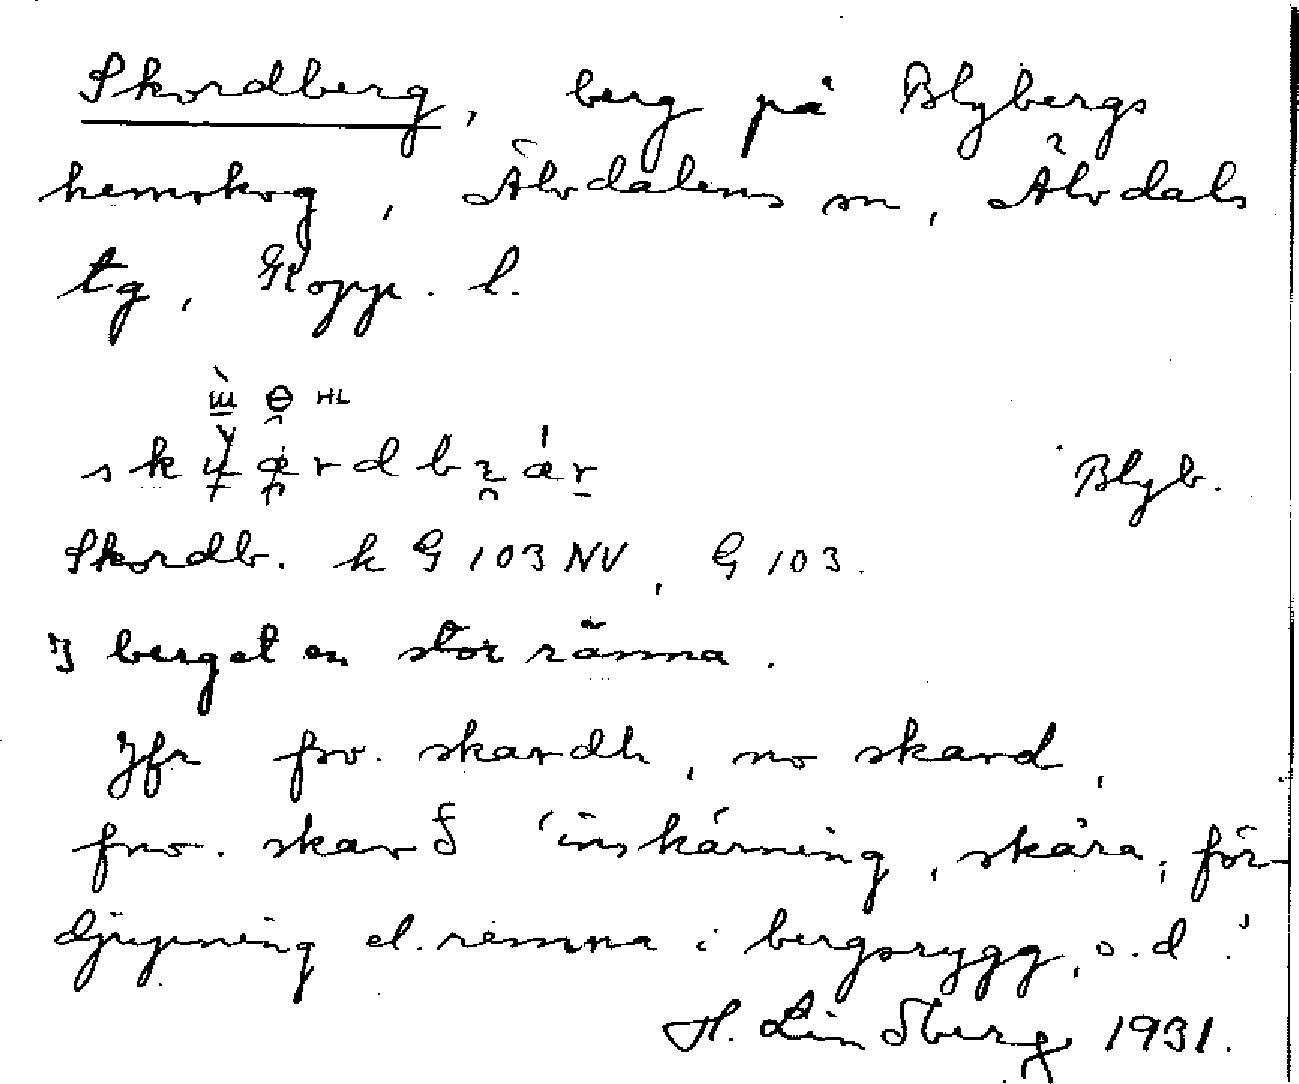 Skordberg, berg på Blybergs
hemskog, Älvdalens sn, Älvdals
tg, Kopp. l.
HL
Blyb.
Skordb. k G 103 NV, G 103.
I berget en stor ränna.
Jfr fsv. skardh, no skard,
fno. skarð 'inskärning, skåra, för-
djupning el. remna i bergsrygg, o.d.'
H. Lindberg 1931.